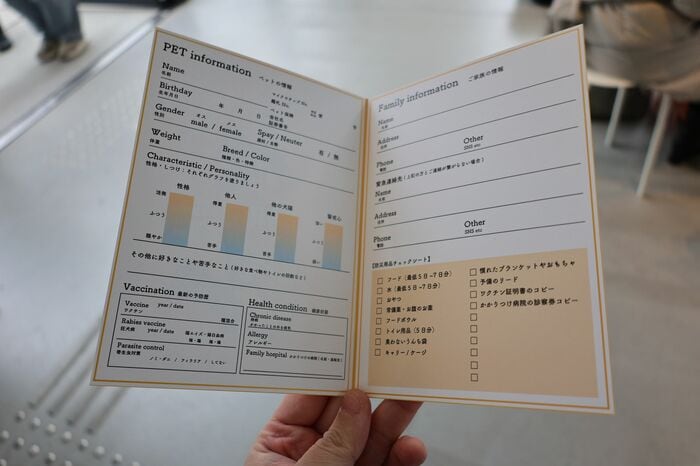 PET information ペットの情報
Name
名前
マイクロチップNo.
鑑札No.
Birthday
生年月日
年 月 日
ペット保険
会社名
証券番号
Gender
性別
オス メス
male / female
Spay / Neuter
避妊 / 去勢
有 / 無
Weight
体重
Breed / Color
種類・色・特徴
Characteristic / Personality
性格・しつけ：それぞれグラフを塗りましょう
性格 他人 他の犬猫 警戒心
活発 得意 得意 強い
ふつう ふつう ふつう ふつう
穏やか 苦手 苦手 弱い
その他に好きなことや苦手なこと（好きな食べ物やトイレの回数など）
Vaccination 最新の予防歴
Vaccine year / date
ワクチン
種混合
Rabies vaccine year / date
狂犬病
Parasite control
寄生虫対策
ノミ・ダニ / フィラリア / してない
Health condition 健康状態
Chronic disease
持病
Allergy
アレルギー
Family hospital かかりつけの病院（名前・連絡先）
Family information ご家族の情報
Name
名前
Address
住所
Phone
電話
Other
SNS etc
緊急連絡先（上記の方とご連絡が繋がらない場合）
Name
名前
Address
住所
Phone
電話
Other
SNS etc
【防災用品チェックシート】
□ フード（最低5日~7日分）
□ 水（最低5日~7日分）
□ おやつ
□ 常備薬・お腹のお薬
□ フードボウル
□ トイレ用品（5日分）
□ 臭わないうんち袋
□ キャリー/ケージ
□ 慣れたブランケットやおもちゃ
□ 予備のリード
□ ワクチン証明書のコピー
□ かかりつけ病院の診察券コピー